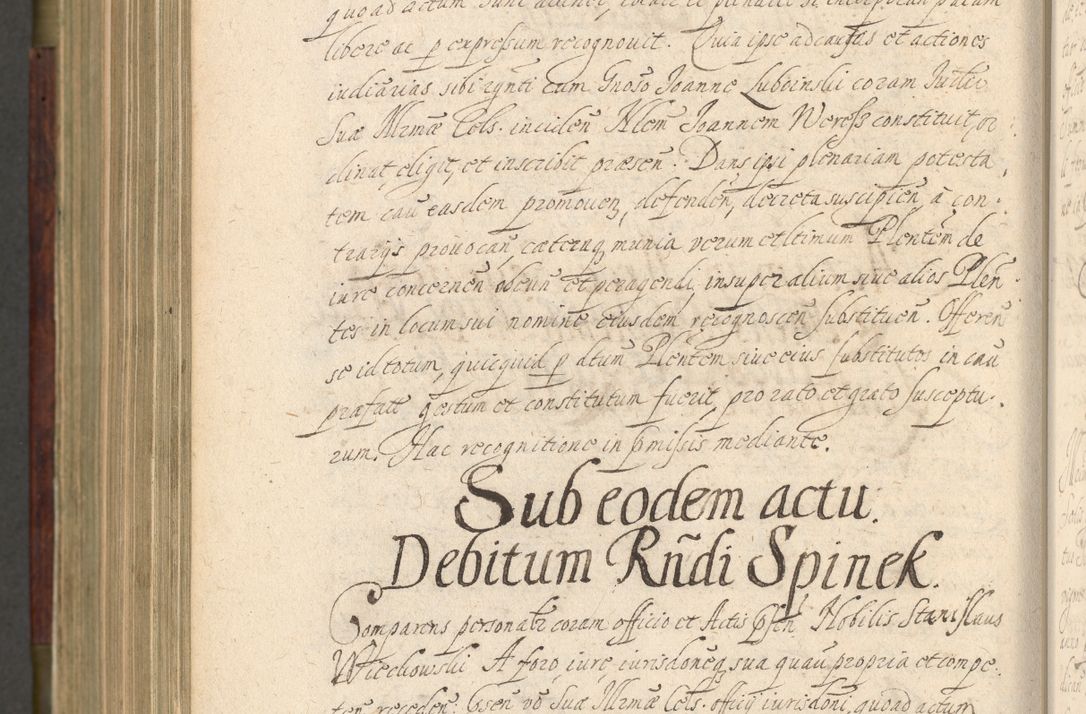 quoad actum
libere ac p expressum recognouit. Quia ipse ad causas et actiones
iudiarias sibi cum Gnoso Joanne Lubeinski coram
Suæ Illrmæ Cels. inciden Joannem Weress constituit, or
dinat, eligit, et inscribit præsen. Dans ipsi plenariam potesta
tem cau easdem promouen, defenden, decreta suscipien, à con
trarijs prouocan, cæteraq munia verum et ltimum Plentem de
iure concernen obeun et peragendi, insuper alium siue alios Plen
tes in locum sui nomine eiusdem recognoscen substituen. Offeren
se id totum, quicquid p dtum Plentem siue eius substitutos in cau
præfatt gestum et constitutum fuerit, pro rato et grato susceptu
rum. Hac recognitione in pmissis mediante.
Sub eodem actu.
Debitum Rñdi Spinek.
Comparens personatr coram officio et Actis pñsen Nobilis Stanislaus
Wiechowski. A foro, iure, iurisdoneq sua quauis propria et compe
ten receden. vo Suæ Illrmæ Cels. officij iurisdoni, quoad actum